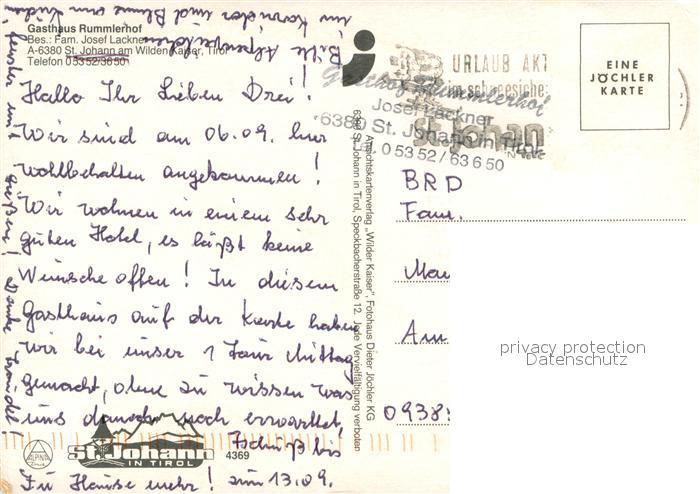 Gasthaus Rummlerhof
Bes.: Fam. Josef Lackner
A-6380 St. Johann am Wilden Kaiser, Tirol
Telefon 05352/3650
Hallo Ihr Lieben Drei!
Wir sind am 06.09. hier
wohlbehalten angekommen!
Wir wohnen in einem sehr
guten Hotel, es läßt keine
Wünsche offen! In diesem
Gasthaus auf der Karte haben
wir bei unser 1 Tour Mittag
gemacht, ohne zu wissen was
uns danach noch erwartet,
Tschüß bis
Zu Hause mehr! am 13.09.
Bitte Alpenveilchen
im Korridor und Blume am
fenster mit gießen! Danke
St. Johann
IN TIROL
ALPINA
4369
Ansichtskartenverlag „Wilder Kaiser", Fotohaus Dieter Jöchler KG
6380 St. Johann in Tirol, Speckbacherstraße 12. Jede Vervielfältigung verboten
URLAUB AKT
im schneesicher
St. Johann
IN TIROL
Gasthof Rummlerhof
Josef Lackner
6380 St. Johann in Tirol
Tel. 0 53 52 / 63 6 50
EINE
JÖCHLER
KARTE
BRD
Fam.
Mau
Am
0938
privacy protection
Datenschutz